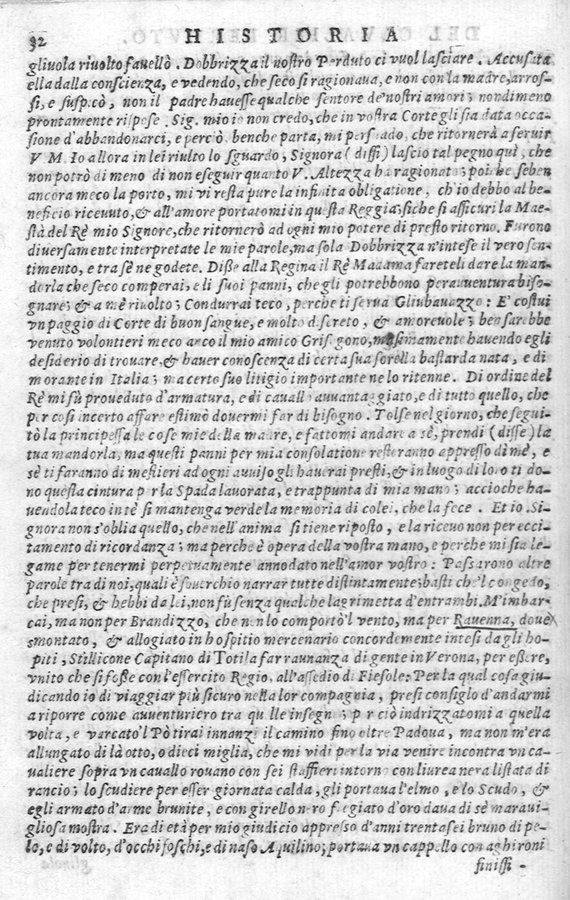 92 HISTORIA
gliuola riuolto fauellò. Dobbrizza il nostro Perduto ci vuol lasciare. Accusata
ella dalla conscienza, e vedendo, che seco si ragionaua, e non con la madre, arros-
sì, e suspicò, non il padre hauesse qualche sentore de'nostri amori; nondimeno
prontamente rispose. Sig. mio io non credo, che in vostra Corte gli sia data occa-
sione d'abbandonarci, e perciò benche parta, mi persuado, che ritornerà a seruir
V M. Io allora in lei riulto lo sguardo, Signora (dissi) lascio tal pegno quì, che
non potrò di meno di non eseguir quanto V. Altezza ha ragionato; poiche seben
ancora meco la porto, mi vi resta pure la infinita obligatione, ch'io debbo al be-
neficio riceuuto, & all'amore portatomi in questa Reggia; siche si assicuri la Mae-
stà del Rè mio Signore, che ritornerò ad ogni mio potere di presto ritorno. Furono
diuersamente interpretate le mie parole, ma sola Dobbrizza n'intese il vero sen-
timento, e tra sè ne godete. Disse alla Regina il Rè Madama fareteli dare la man-
derla che seco comperai, e li suoi panni, che gli potrebbono perauuentura biso-
gnare; & a mè riuolto; Condurrai teco, perche ti serua Gliubauazzo: E' costui
vn paggio di Corte di buon sangue, e molto discreto, & amoreuole; ben sarebbe
venuto volontieri meco anco il mio amico Grisigono, massimamente hauendo egli
desiderio di trouare, & hauer conoscenza di certa sua sorella bastarda nata, e di
morante in Italia; ma certo suo litigio importante ne lo ritenne. Di ordine del
Rè mi sù proueduto d'armatura, e di cauallo auuantaggiato, e di tutto quello, che
per così incerto affare estimò douermi far di bisogno. Tolse nel giorno, che segui-
tò la principessa le cose mie della madre, e fattomi andare a sè, prendi (disse) la
tua mandorla, ma questi panni per mia consolatione resteranno appresso di mè, e
sè ti faranno di mestieri ad ogni auuiso gli hauerai presti, & in luogo di loro ti do-
no questa cintura per la Spada lauorata, e trappunta di mia mano; accioche ha-
uendola teco in tè si mantenga verde la memoria di colei, che la fece. Et io. Si-
gnora non s'oblia quello, che nell'anima si tiene riposto, e la riceuo non per ecci-
tamento di ricordanza; ma perche è opera della vostra mano, e perche mi sia le-
game per tenermi perpetuamente annodato nell'amor vostro: Passarono altre
parole tra di noi, quali è souerchio narrar tutte distintamente; basti che'l congedo,
che presi, & hebbi da lei, non fù senza qualche lagrimetta d'entrambi. M'imbar-
cai, ma non per Brandizzo, che non lo comportò'l vento, ma per Rauenna, doue
smontato, & allogiato in hospitio mercenario concordemente intesi dagli ho-
piti, Stillicone Capitano di Totila far raunanza di gente in Verona, per essere,
vnito che si fosse con l'essercito Regio, all'assedio di Fiesole: Per la qual cosa giu-
dicando io di viaggiar più sicuro nella lor compagnia, presi consiglo d'andarmi
a riporre come auuenturiero tra quelle insegne; per ciò indrizzatomi a quella
volta, e varcato'l Pò tirai innanzi il camino fino oltre Padoua, ma non m'era
allungato di là otto, o dieci miglia, che mi vidi per la via venire incontra vn ca-
ualiere sopra vn cauallo rouano con sei staffieri intorno con liurea nera listata di
rancio; lo scudiere per esser giornata calda, gli portaua l'elmo, e lo Scudo, &
egli armato d'arme brunite, e con girello nero fregiato d'oro daua di sè maraui-
gliosa mostra. Era di età per mio giudicio appresso d'anni trentasei bruno di pe-
lo, e di volto, d'occhi foschi, e di naso Aquilino; portaua vn cappello con aghironi
finissi-